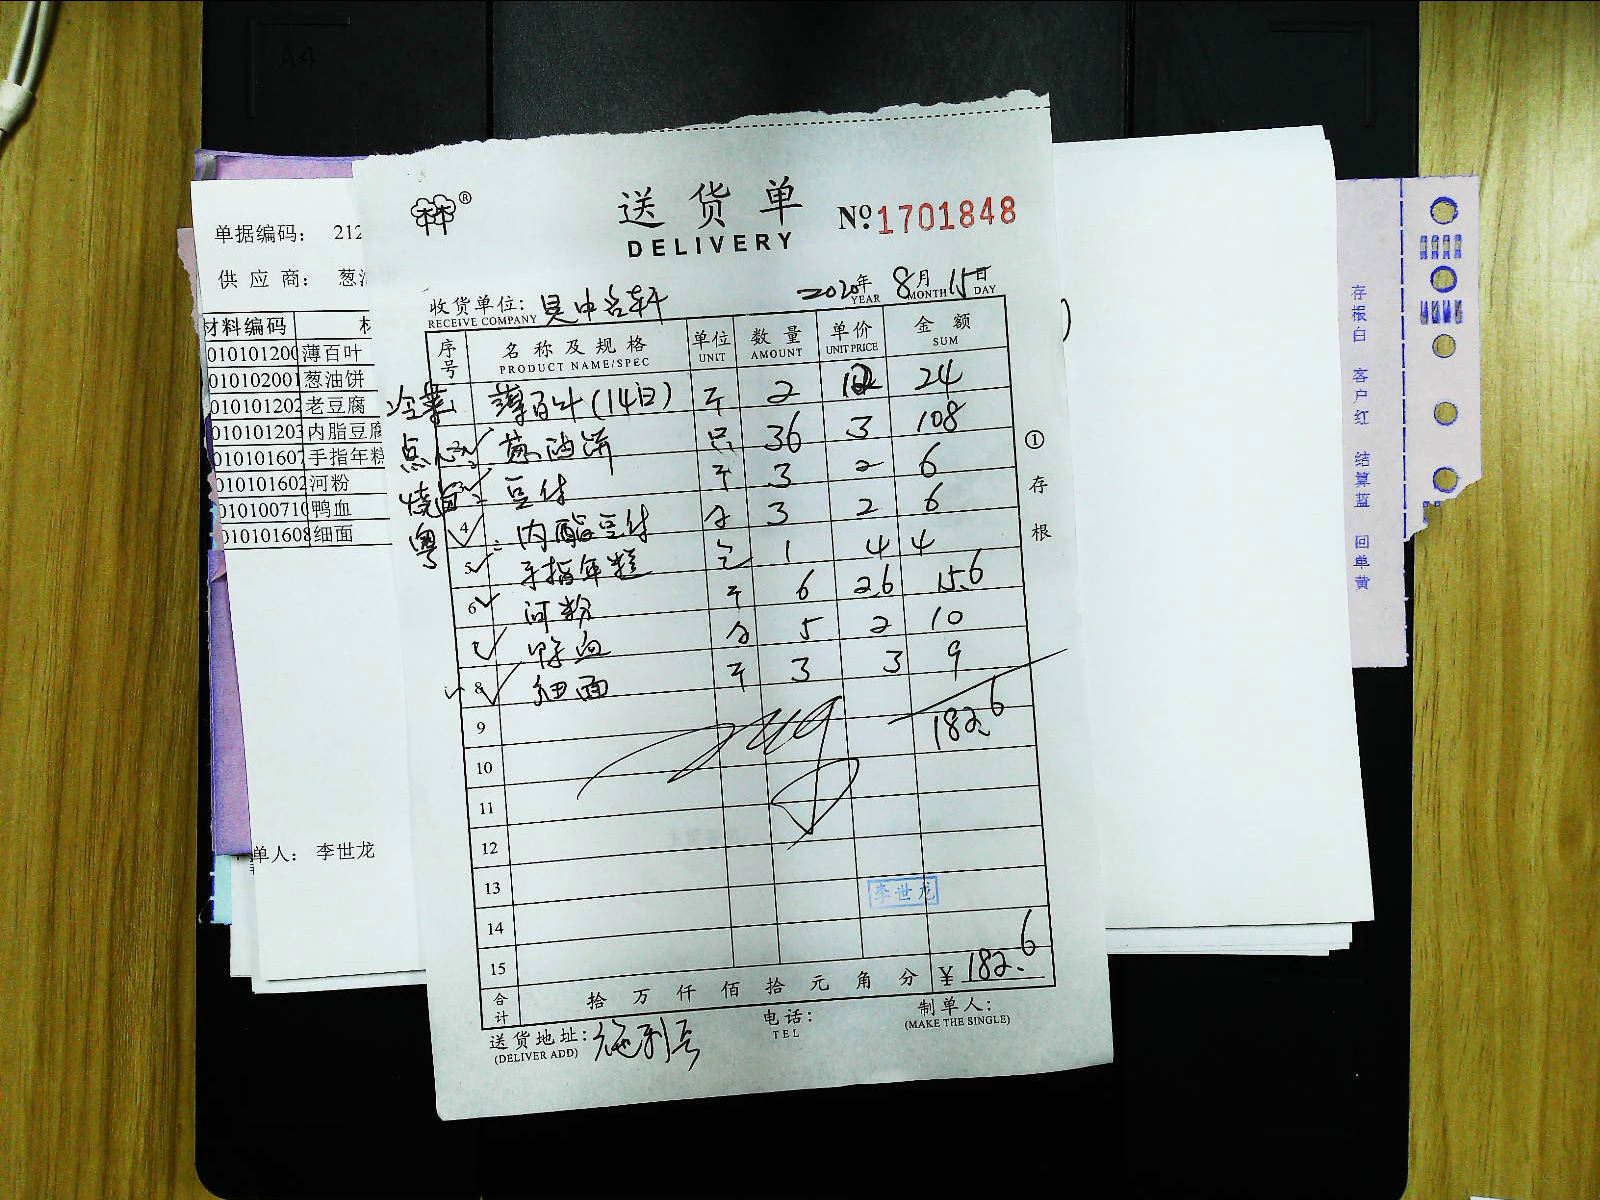 送货单
DELIVERY
№ 1701848
收货单位: 吴中名轩
RECEIVE COMPANY
2020年 8月 15日
YEAR MONTH DAY
序号 名称及规格 单位 数量 单价 金额
PRODUCT NAME/SPEC UNIT AMOUNT UNIT PRICE SUM
冷菜 薄百叶(14日) 斤 2 12 24
点心 葱油饼 只 36 3 108
烧 豆付 斤 3 2 6
粤 4 内酯豆付 合 3 2 6
5 手指年糕 包 1 4 4
6 河粉 斤 6 2.6 15.6
7 鸭血 合 5 2 10
8 细面 斤 3 3 9
9 182.6
10
11
12
13 李世龙
14
15
合计 拾 万 仟 佰 拾 元 角 分 ¥ 182.6
送货地址:
(DELIVER ADD)
电话:
TEL
制单人:
(MAKE THE SINGLE)
① 存根
单据编码: 212
供应商: 葱油
材料编码
010101200 薄百叶
010102001 葱油饼
010101202 老豆腐
010101203 内脂豆腐
010101607 手指年糕
010101602 河粉
010100710 鸭血
010101608 细面
单人: 李世龙
存根白 客户红 结算蓝 回单黄